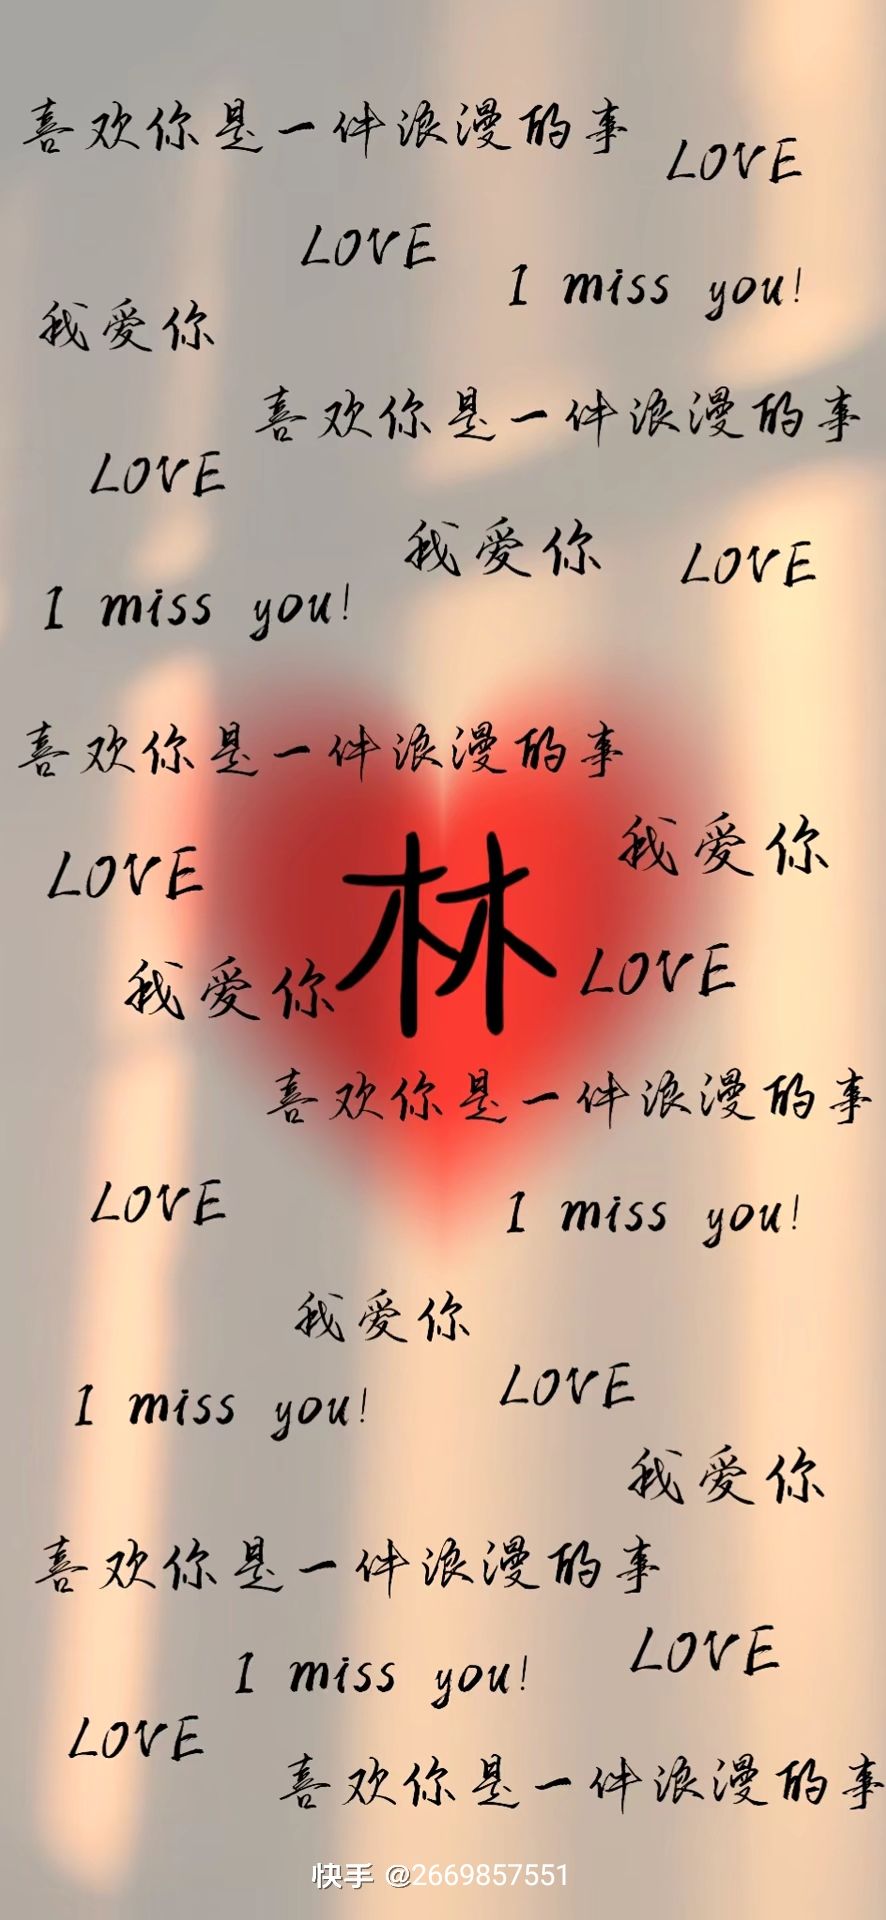 喜欢你是一件浪漫的事
LOVE
LOVE
I miss you!
我爱你
喜欢你是一件浪漫的事
LOVE
我爱你
LOVE
I miss you!
喜欢你是一件浪漫的事
我爱你
LOVE
林
我爱你
LOVE
喜欢你是一件浪漫的事
LOVE
I miss you!
我爱你
LOVE
I miss you!
我爱你
喜欢你是一件浪漫的事
LOVE
I miss you!
LOVE
喜欢你是一件浪漫的事
快手 @2669857551